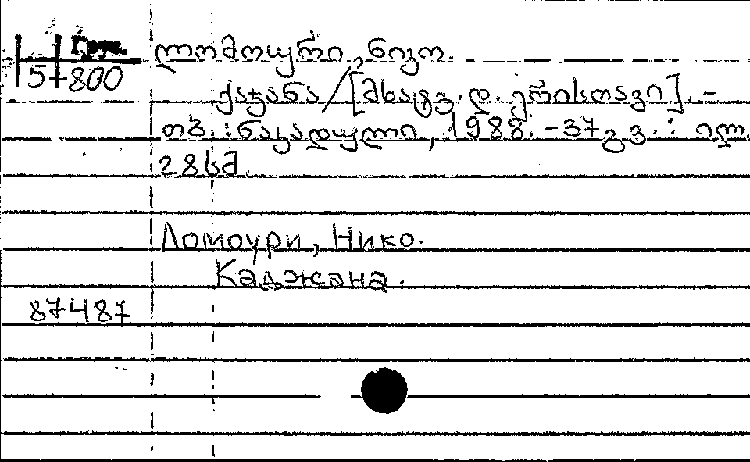 Груз.
5-800
ლომოური, ნიკო.
ქაჯანა / [მხატვ. დ. ერისთავი]. -
თბ. : ნაკადული, 1988. - 37 გვ. : ილ.
28 სმ.
Ломоури, Нико.
Каджана.
87487